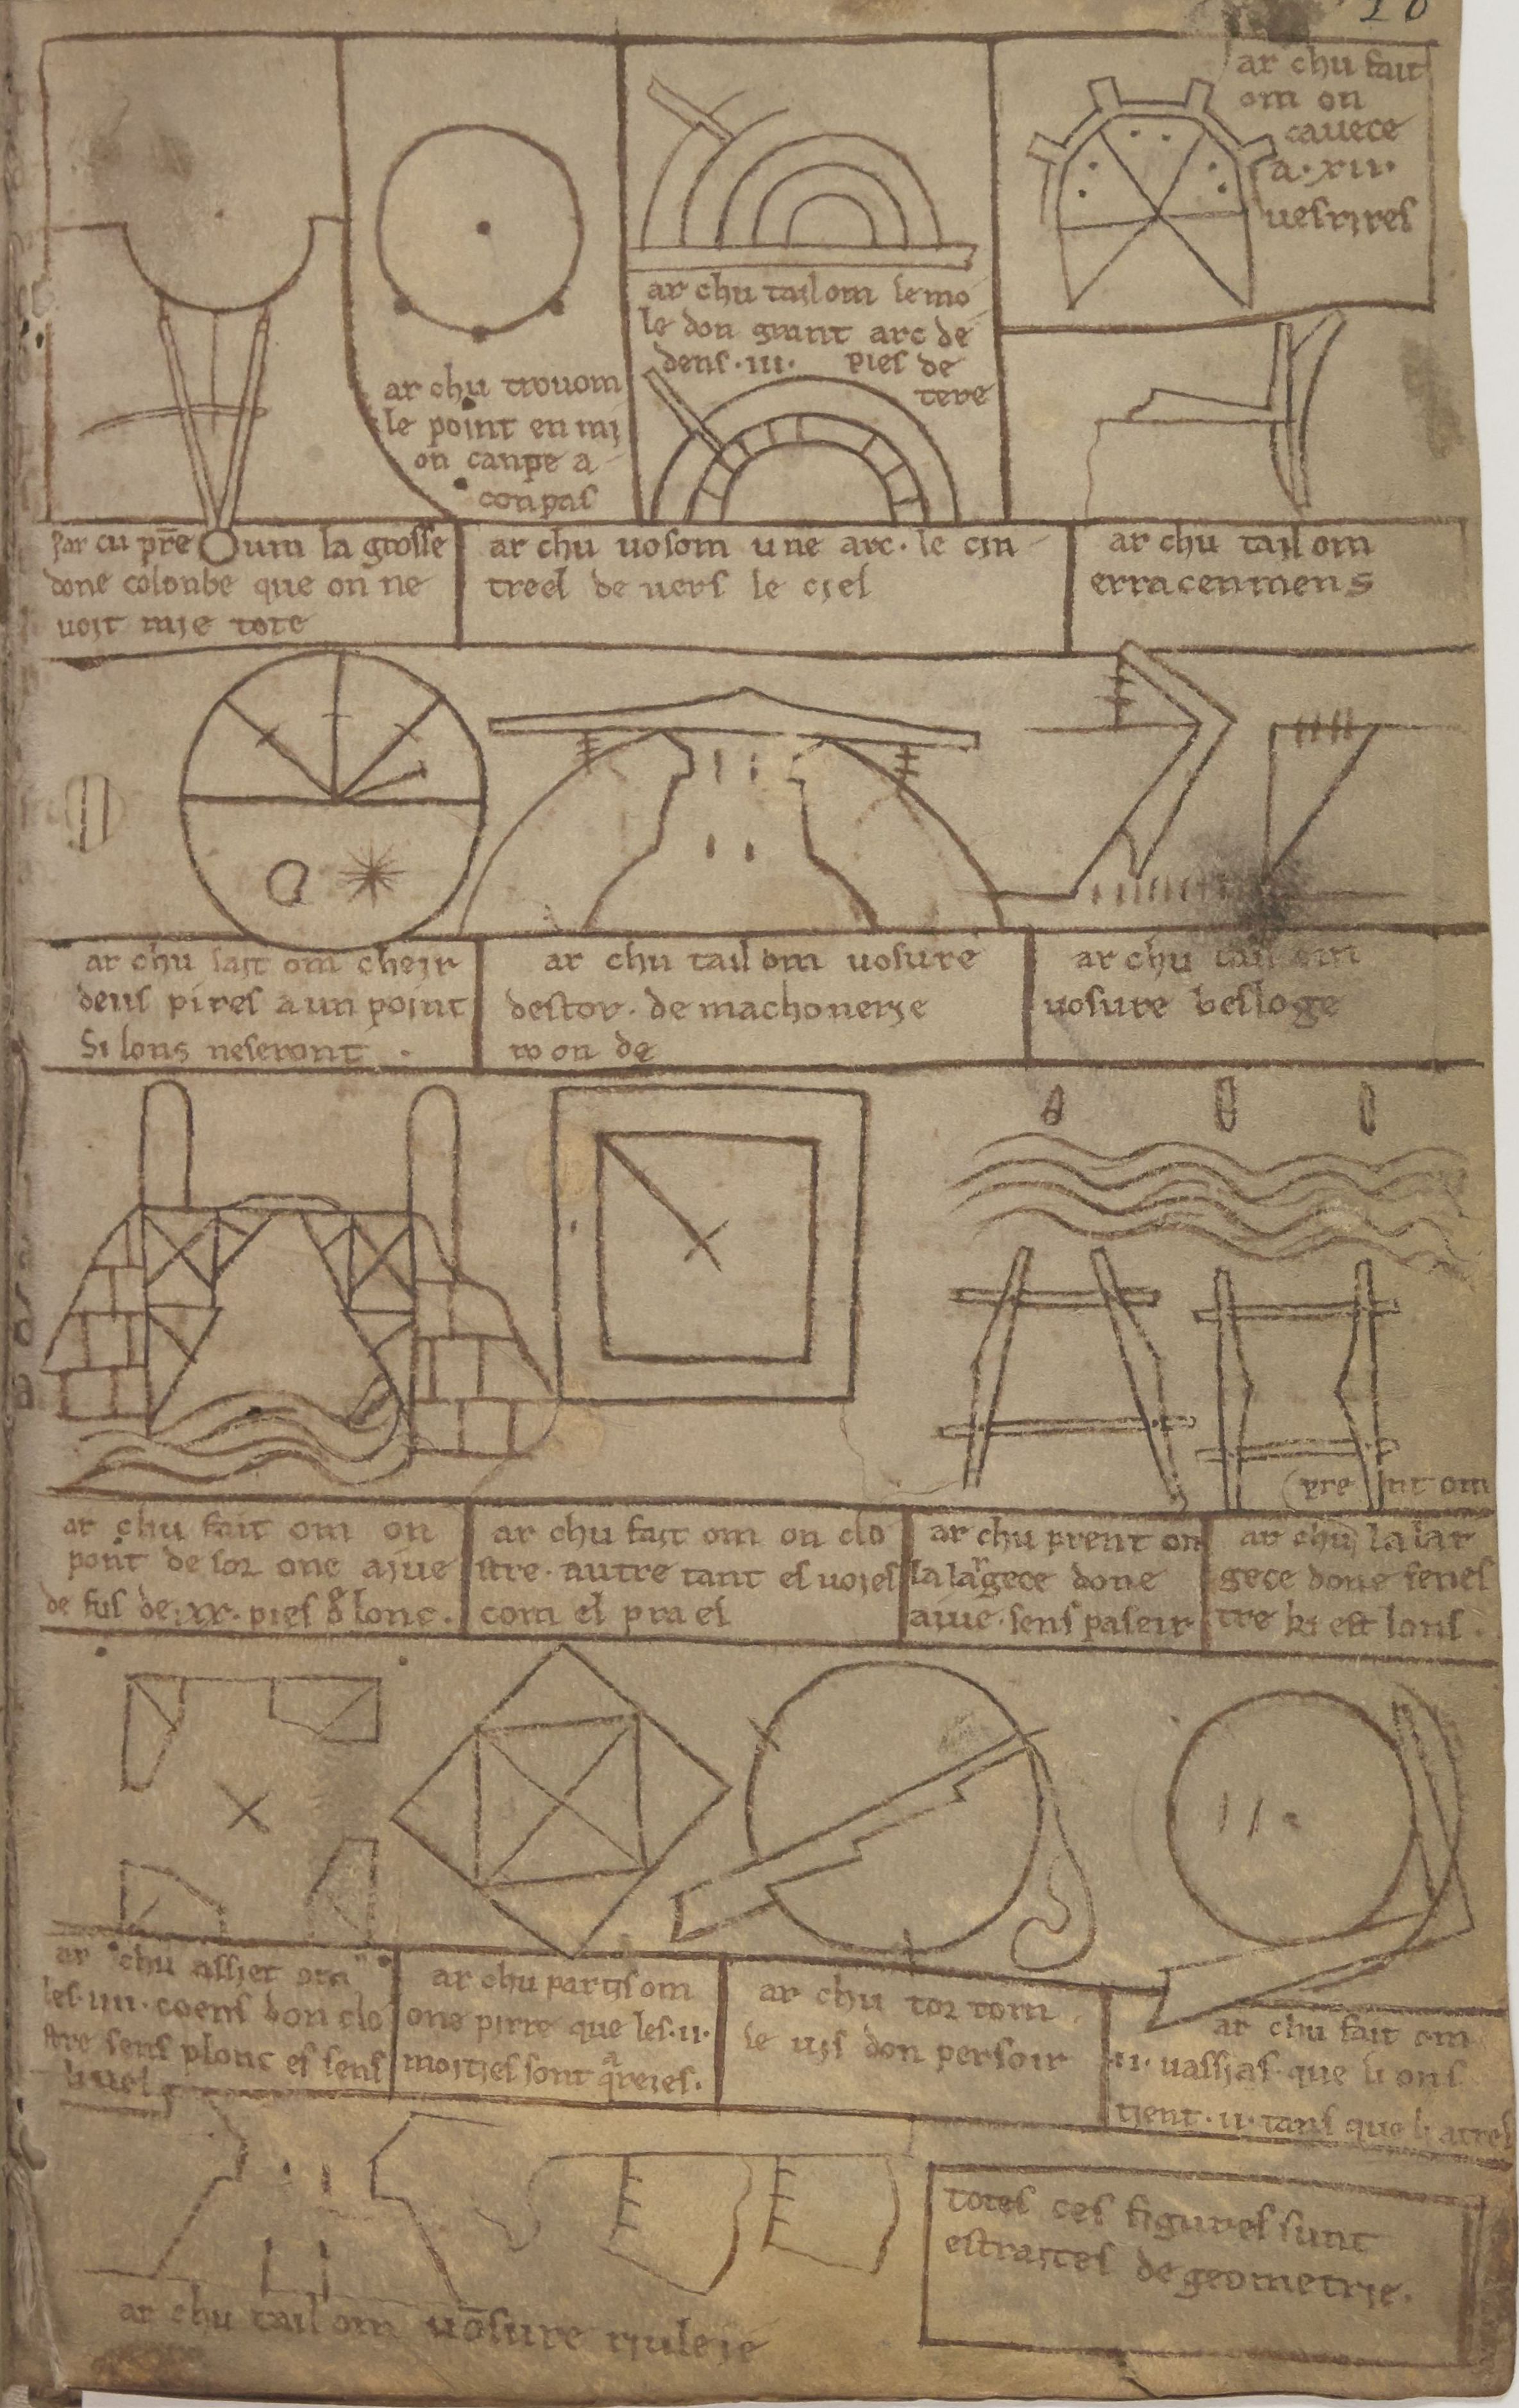 ar chu fait
om on
cauece
a·xii·
uesrires
ar chu tail om le mo
le don grant arc de
dens·iii· pies de
tere
ar chu trouom
le point en mi
on canpe a
conpas
Par cu p̄re Oum la grosse
done colonbe que on ne
uoit mie tote
ar chu uosom une arc· le cin
treel de uers le ciel
ar chu tail om
erracenmens
ar chu fait om cheir
deus pires a un point
Si lons ne seront ·
ar chu tail om uosure
destor· de machonerie
roonde
ar chu tail om
uosure besloge
ar chu fait om on
pont desor one aiue
de fus de·xx· pies lonc·
ar chu fait om on clo
stre· autre tant es uoies
com el prael
ar chu prent on
la largece done
aiue· sens paseir
pre nt om
ar chu la lar
gece done fenes
tre ki est lons·
ar chu assiet om
les·iiii· coens don clo
stre sens plonc et sens
liuel
ar chu partis om
one pirre que les·ii·
moities sont q̄reies·
ar chu tor tom
le uis don persoir
ar chu fait om
·ii· uassias· que li ons
tient·ii· tans que li atres
ar chu tail om uosure riuleie
totes ces figures sunt
estraites de geometrie·